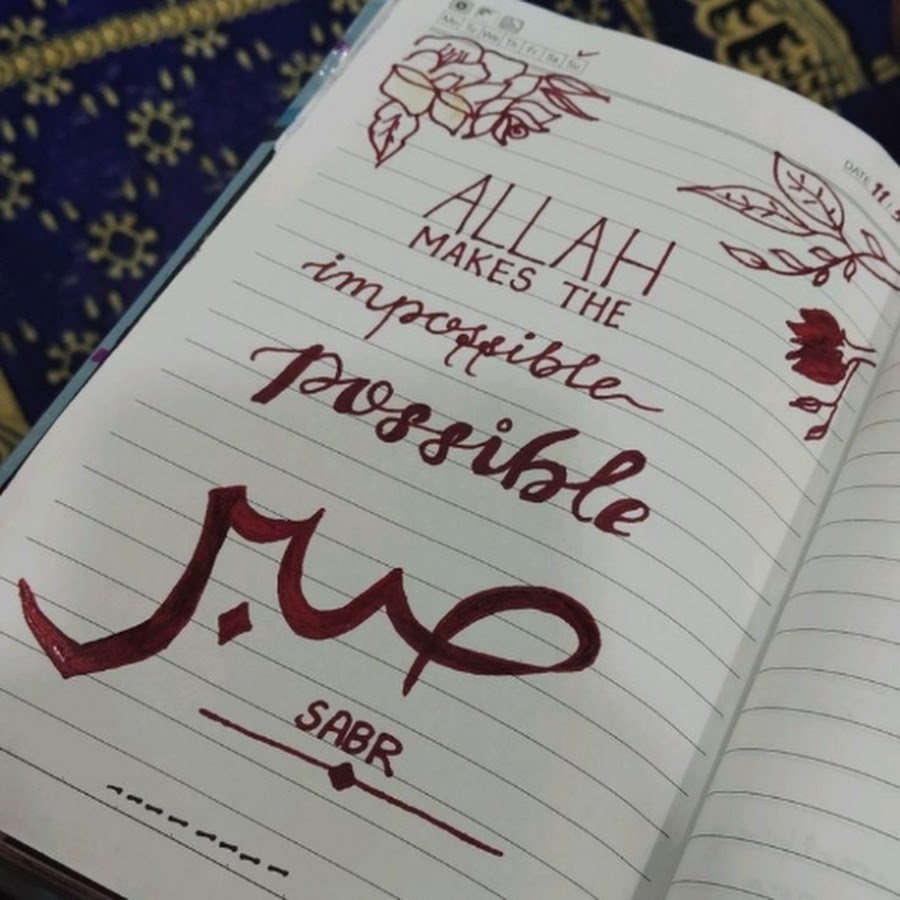 Mo Tu We Th Fr Sa Su
DATE 11.
ALLAH
MAKES THE
impossible
possible
صبر
SABR